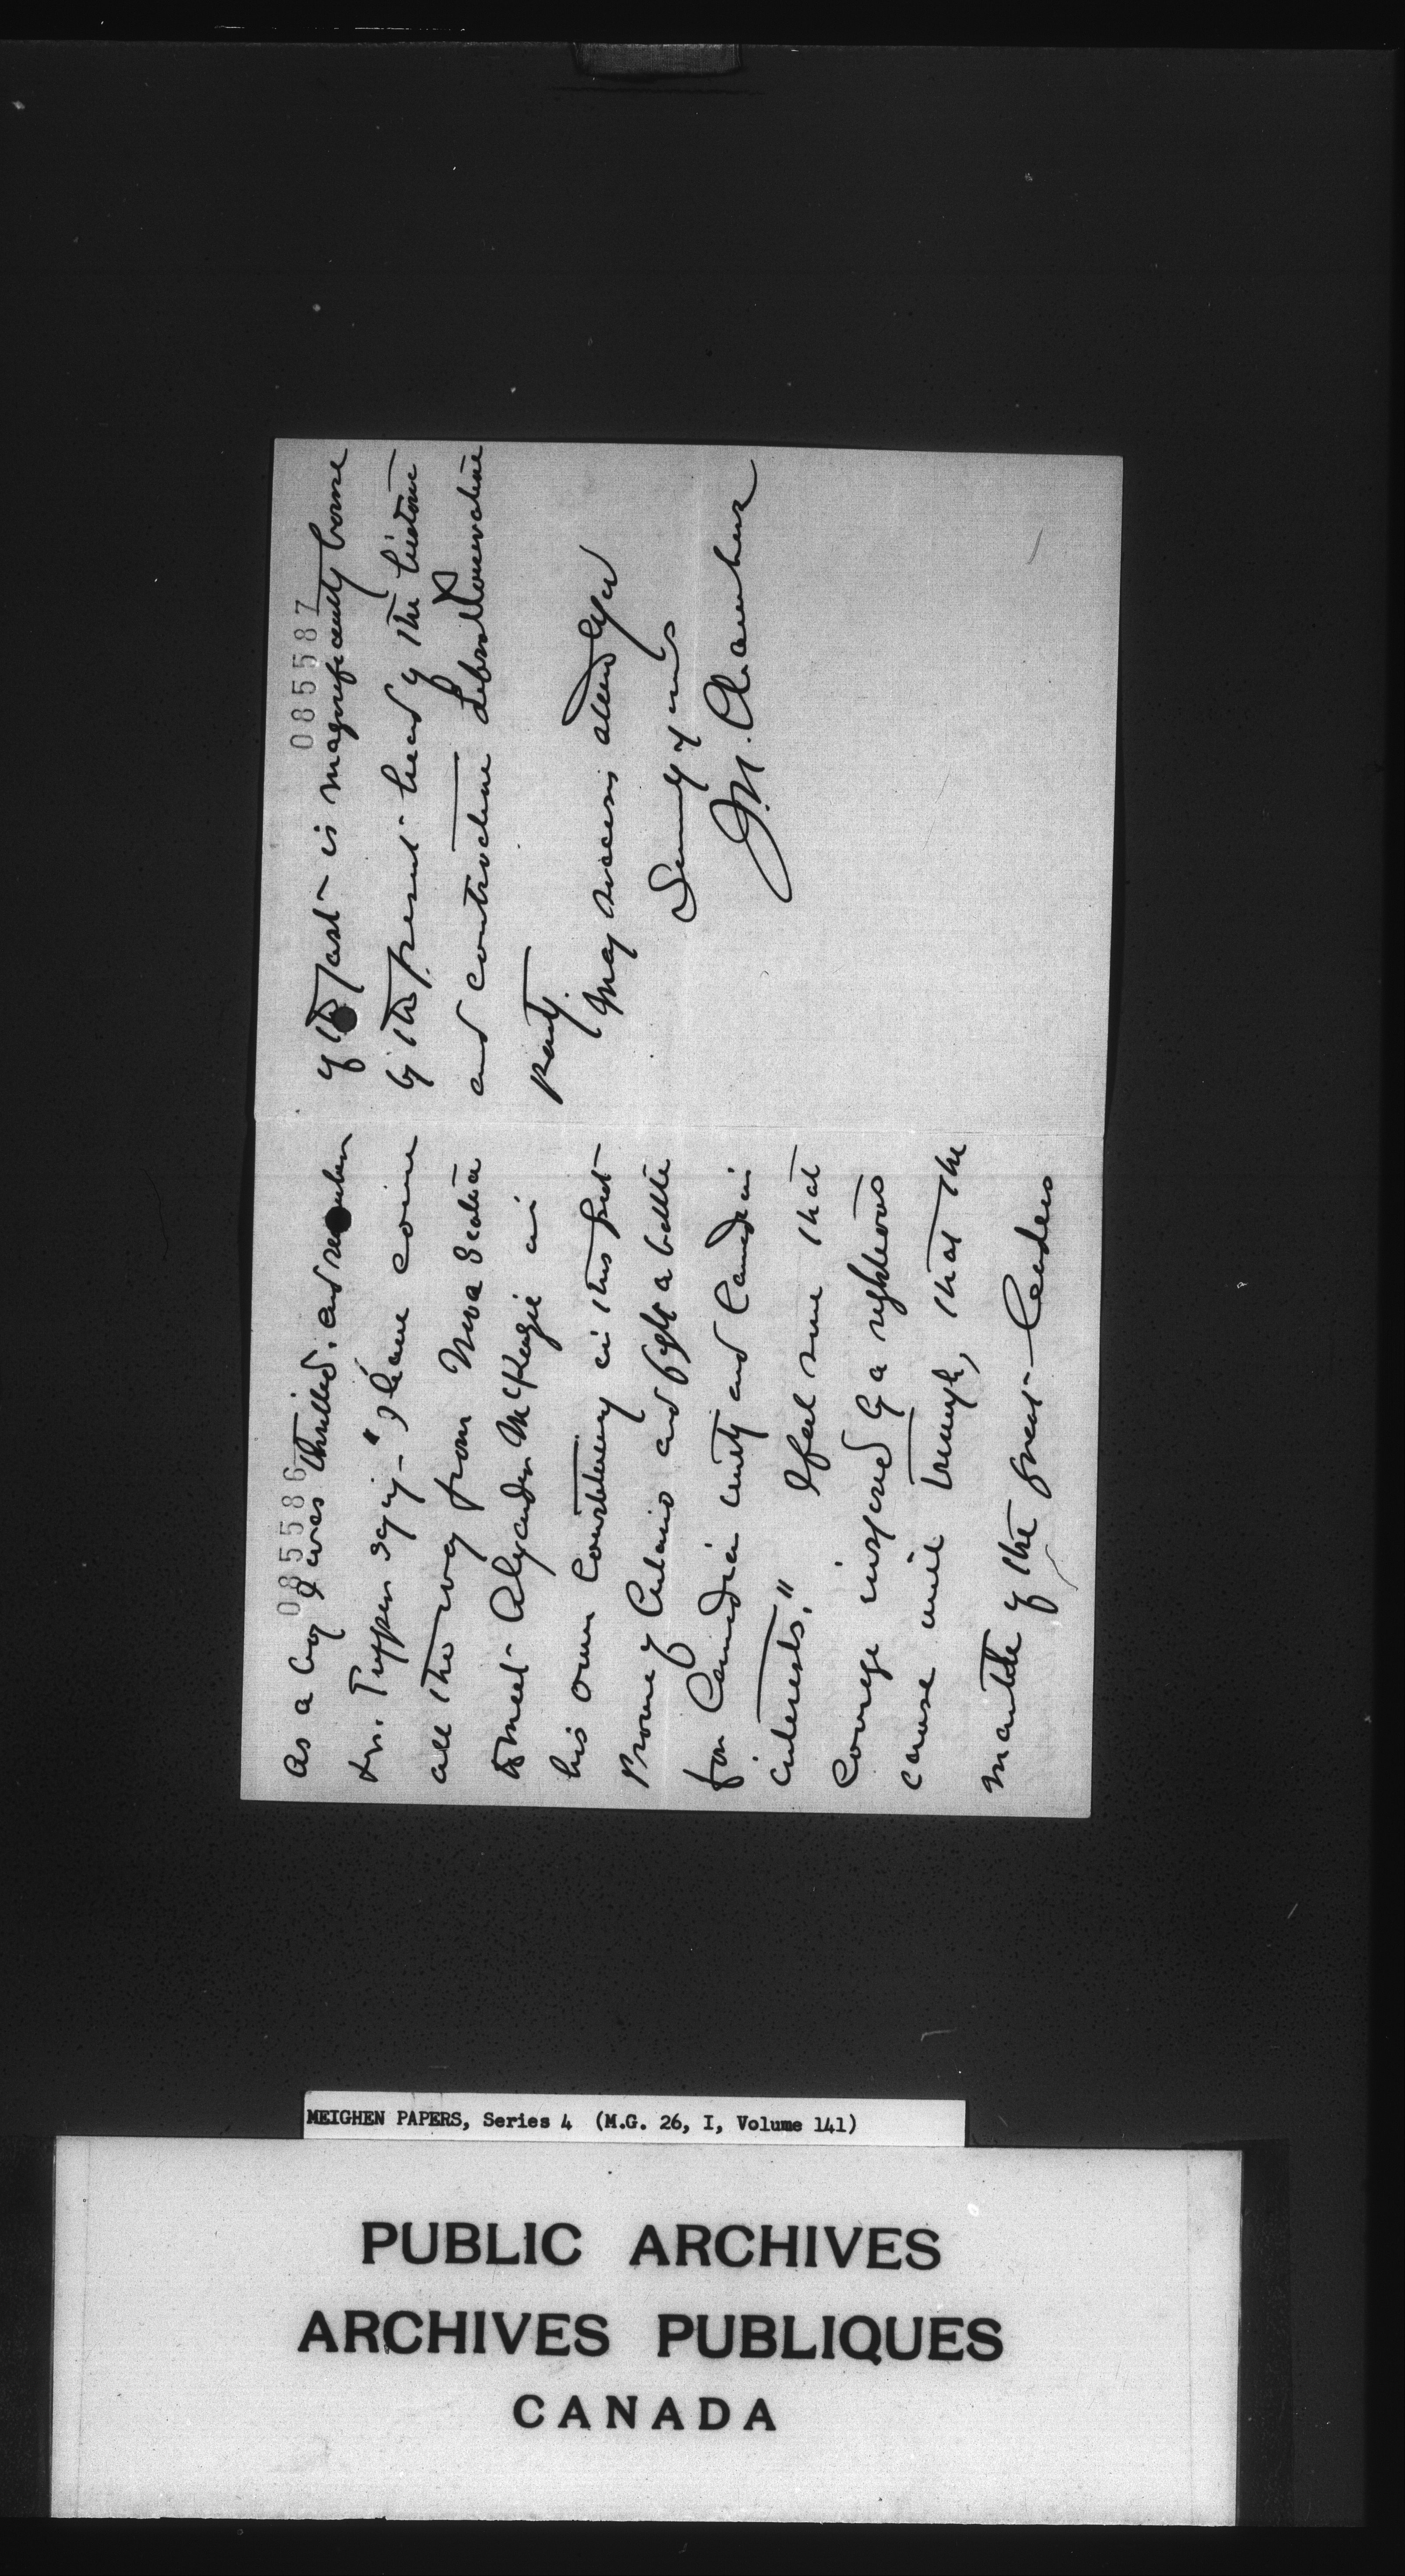 085586
as a boy I was thrilled. and remember
Dr. Tupper saying - "I have come
all the way from Nova Scotia
to meet Alexander McKenzie in
his own Constituency in this great
Province of Ontario and fight a battle
for Canadian unity and Canadian
interests." I feel sure that
courage inspired by a righteous
cause will triumph, that the
mantle of the great leaders
085587
of the past is magnificently borne
by the present head of the historic
and constructive Liberal Conservative
party.
May success attend you
Sincerely yours
J. M. Chambers
MEIGHEN PAPERS, Series 4 (M.G. 26, I, Volume 141)
PUBLIC ARCHIVES
ARCHIVES PUBLIQUES
CANADA